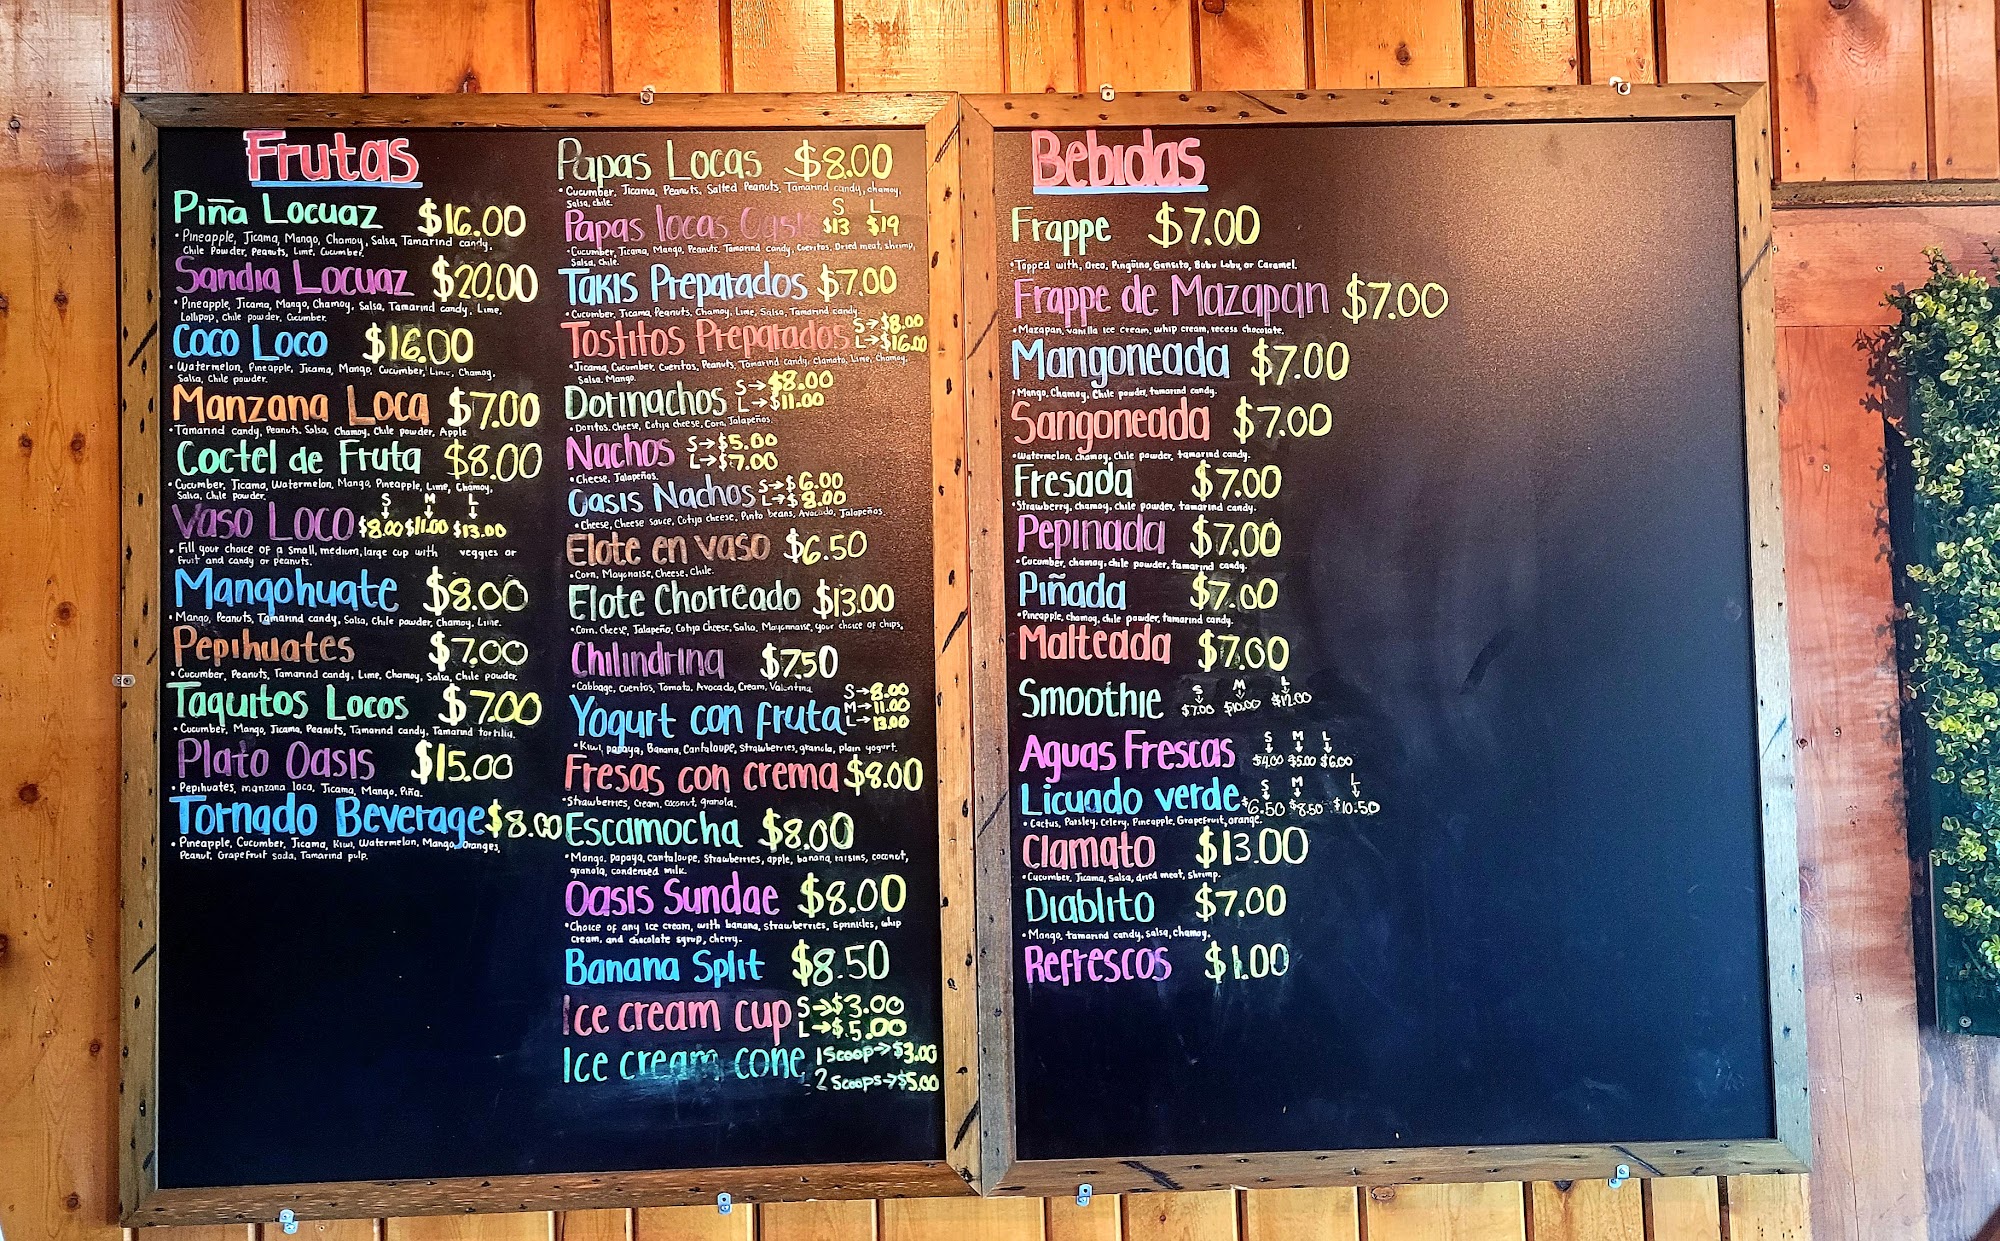 Frutas
Piña Locuaz $16.00
• Pineapple, Jicama, Mango, Chamoy, Salsa, Tamarind candy,
Chile Powder, Peanuts, Lime, Cucumber.
Sandia Locuaz $20.00
• Pineapple, Jicama, Mango, Chamoy, Salsa, Tamarind candy, Lime,
Lollipop, Chile powder, Cucumber.
Coco Loco $16.00
• Watermelon, Pineapple, Jicama, Mango, Cucumber, Lime, Chamoy,
Salsa, Chile powder.
Manzana Loca $7.00
• Tamarind candy, Peanuts, Salsa, Chamoy, Chile powder, Apple
Coctel de Fruta $8.00
• Cucumber, Jicama, Watermelon, Mango, Pineapple, Lime, Chamoy,
Salsa, Chile powder.
S M L
Vaso Loco $8.00 $11.00 $13.00
• Fill your choice of a small, medium, large cup with veggies or
fruit and candy or peanuts.
Mangohuate $8.00
• Mango, Peanuts, Tamarind candy, Salsa, Chile powder, Chamoy, Lime.
Pepihuates $7.00
• Cucumber, Peanuts, Tamarind candy, Lime, Chamoy, Salsa, Chile powder.
Taquitos Locos $7.00
• Cucumber, Mango, Jicama, Peanuts, Tamarind candy, Tamarind tortilla.
Plato Oasis $15.00
• Pepihuates, manzana loca, Jicama, Mango, Piña.
Tornado Beverage $8.00
• Pineapple, Cucumber, Jicama, Kiwi, Watermelon, Mango, Oranges,
Peanut, Grapefruit soda, Tamarind pulp.
Papas Locas $8.00
• Cucumber, Jicama, Peanuts, Salted Peanuts, Tamarind candy, chamoy,
Salsa, chile.
S L
Papas locas Oasis $13 $19
• Cucumber, Jicama, Mango, Peanuts, Tamarind candy, Cueritos, Dried meat, shrimp,
Salsa, Chile.
Takis Preparados $7.00
• Cucumber, Jicama, Peanuts, Chamoy, Lime, Salsa, Tamarind candy.
Tostitos Preparados S→$8.00
L→$16.00
• Jicama, Cucumber, Cueritos, Peanuts, Tamarind candy, Clamato, Lime, Chamoy,
Salsa, Mango.
Dorinachos S→$8.00
L→$11.00
• Doritos, Cheese, Cotija cheese, Corn, Jalapeños.
Nachos S→$5.00
L→$7.00
• Cheese, Jalapeños.
Oasis Nachos S→$6.00
L→$8.00
• Cheese, Cheese sauce, Cotija cheese, Pinto beans, Avocado, Jalapeños.
Elote en vaso $6.50
• Corn, Mayonaise, Cheese, Chile.
Elote Chorreado $13.00
• Corn, Cheese, Jalapeño, Cotija Cheese, Salsa, Mayonnaise, your choice of chips.
Chilindrina $7.50
• Cabbage, cueritos, Tomato, Avocado, Cream, Valentina
Yogurt con fruta S→8.00
M→11.00
L→13.00
• Kiwi, papaya, Banana, Cantaloupe, strawberries, granola, plain yogurt.
Fresas con crema $8.00
• Strawberries, Cream, coconut, granola.
Escamocha $8.00
• Mango, papaya, cantaloupe, Strawberries, apple, banana, raisins, coconut,
granola, condensed milk.
Oasis Sundae $8.00
• Choice of any ice cream, with banana, strawberries, Sprinkles, whip
cream, and chocolate syrup, cherry.
Banana Split $8.50
Ice cream cup S→$3.00
L→$5.00
Ice cream cone 1 Scoop→$3.00
2 Scoops→$5.00
Bebidas
Frappe $7.00
• Topped with, Oreo, Pingüino, Gansito, Bubu Lubu, or Caramel.
Frappe de Mazapan $7.00
• Mazapan, vanilla ice cream, whip cream, recess chocolate.
Mangoneada $7.00
• Mango, Chamoy, Chile powder, tamarind candy.
Sangoneada $7.00
• Watermelon, chamoy, Chile powder, tamarind candy.
Fresada $7.00
• Strawberry, chamoy, chile powder, tamarind candy.
Pepinada $7.00
• Cucumber, chamoy, chile powder, tamarind candy.
Piñada $7.00
• Pineapple, chamoy, chile powder, tamarind candy.
Malteada $7.00
S M L
Smoothie $7.00 $10.00 $12.00
S M L
Aguas Frescas $4.00 $5.00 $6.00
S M L
Licuado verde $6.50 $8.50 $10.50
• Cactus, Parsley, Celery, Pineapple, Grapefruit, orange.
Clamato $13.00
• Cucumber, Jicama, Salsa, dried meat, shrimp.
Diablito $7.00
• Mango, tamarind candy, salsa, chamoy.
Refrescos $1.00